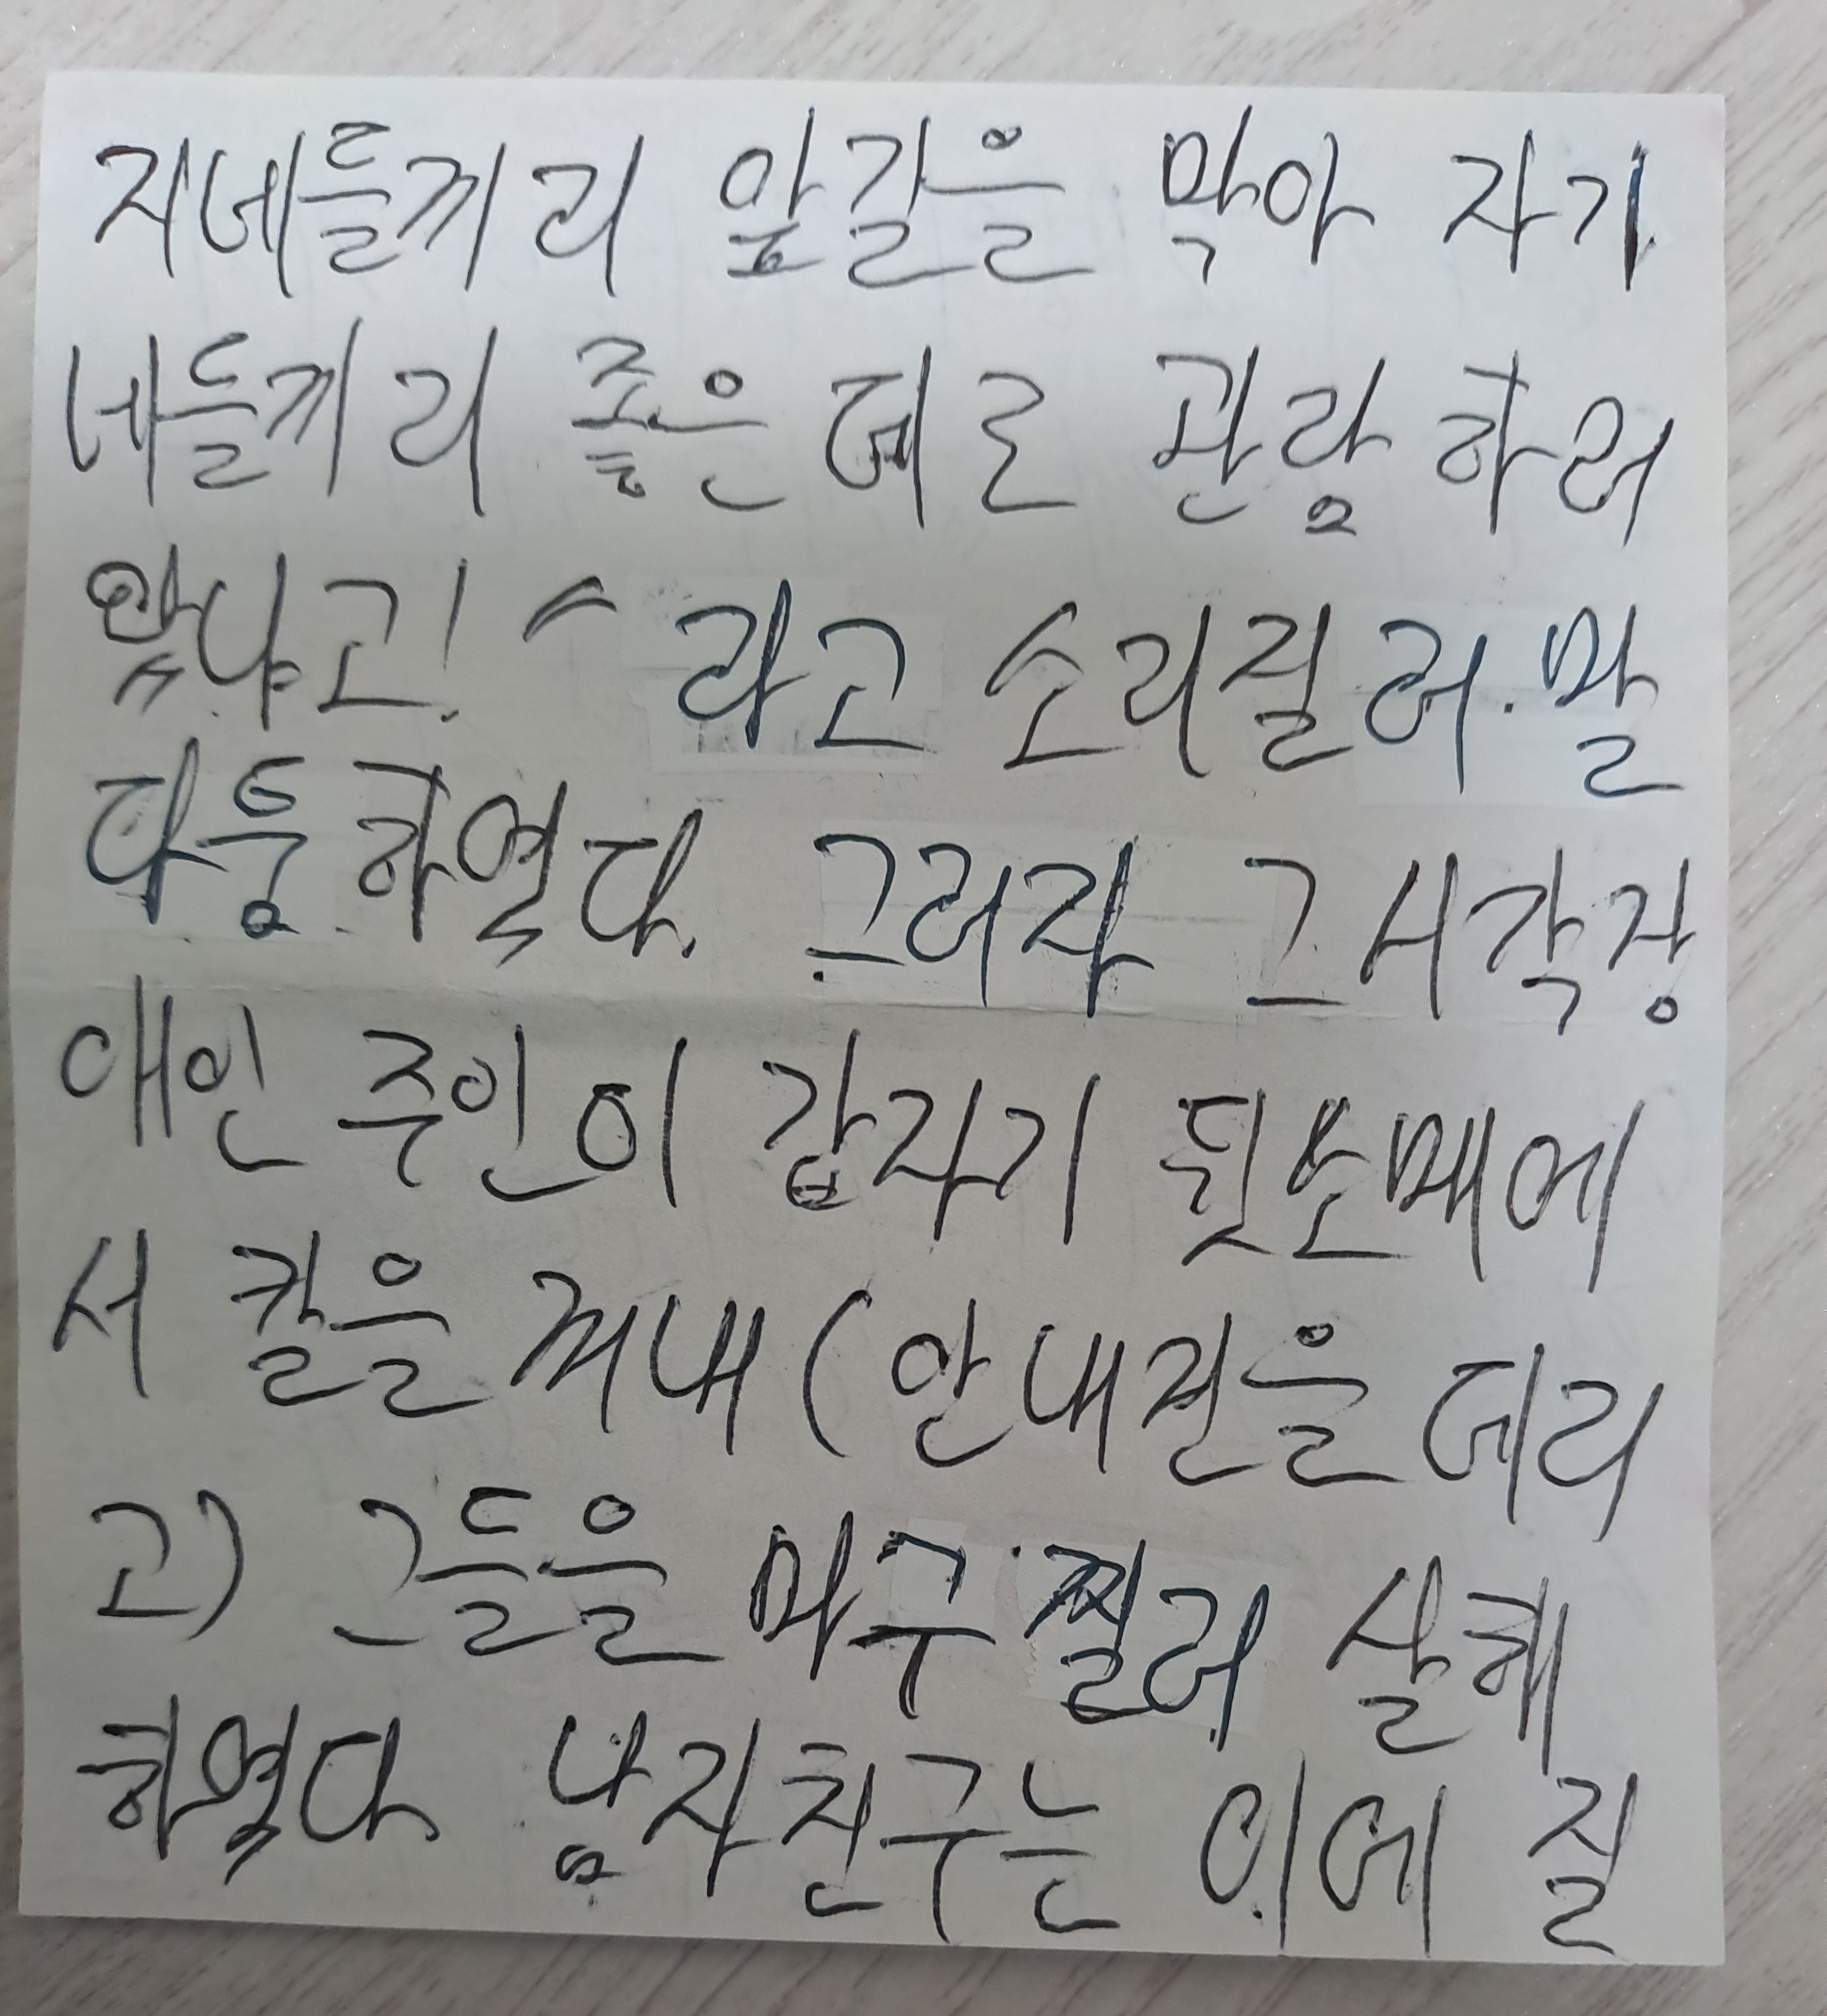 지네들끼리 앞길을 막아 자기
네들끼리 좋은데로 관람하러
왔냐고! " 라고 소리질러. 말
다퉁하였다. 그러자 그 시각장
애인 주인이 갑자기 뒷소매에
서 칼을 꺼내 (안내견을 데리
고) 그들을 마구 찔러 살해
하였다. 남자친구는 이에 질